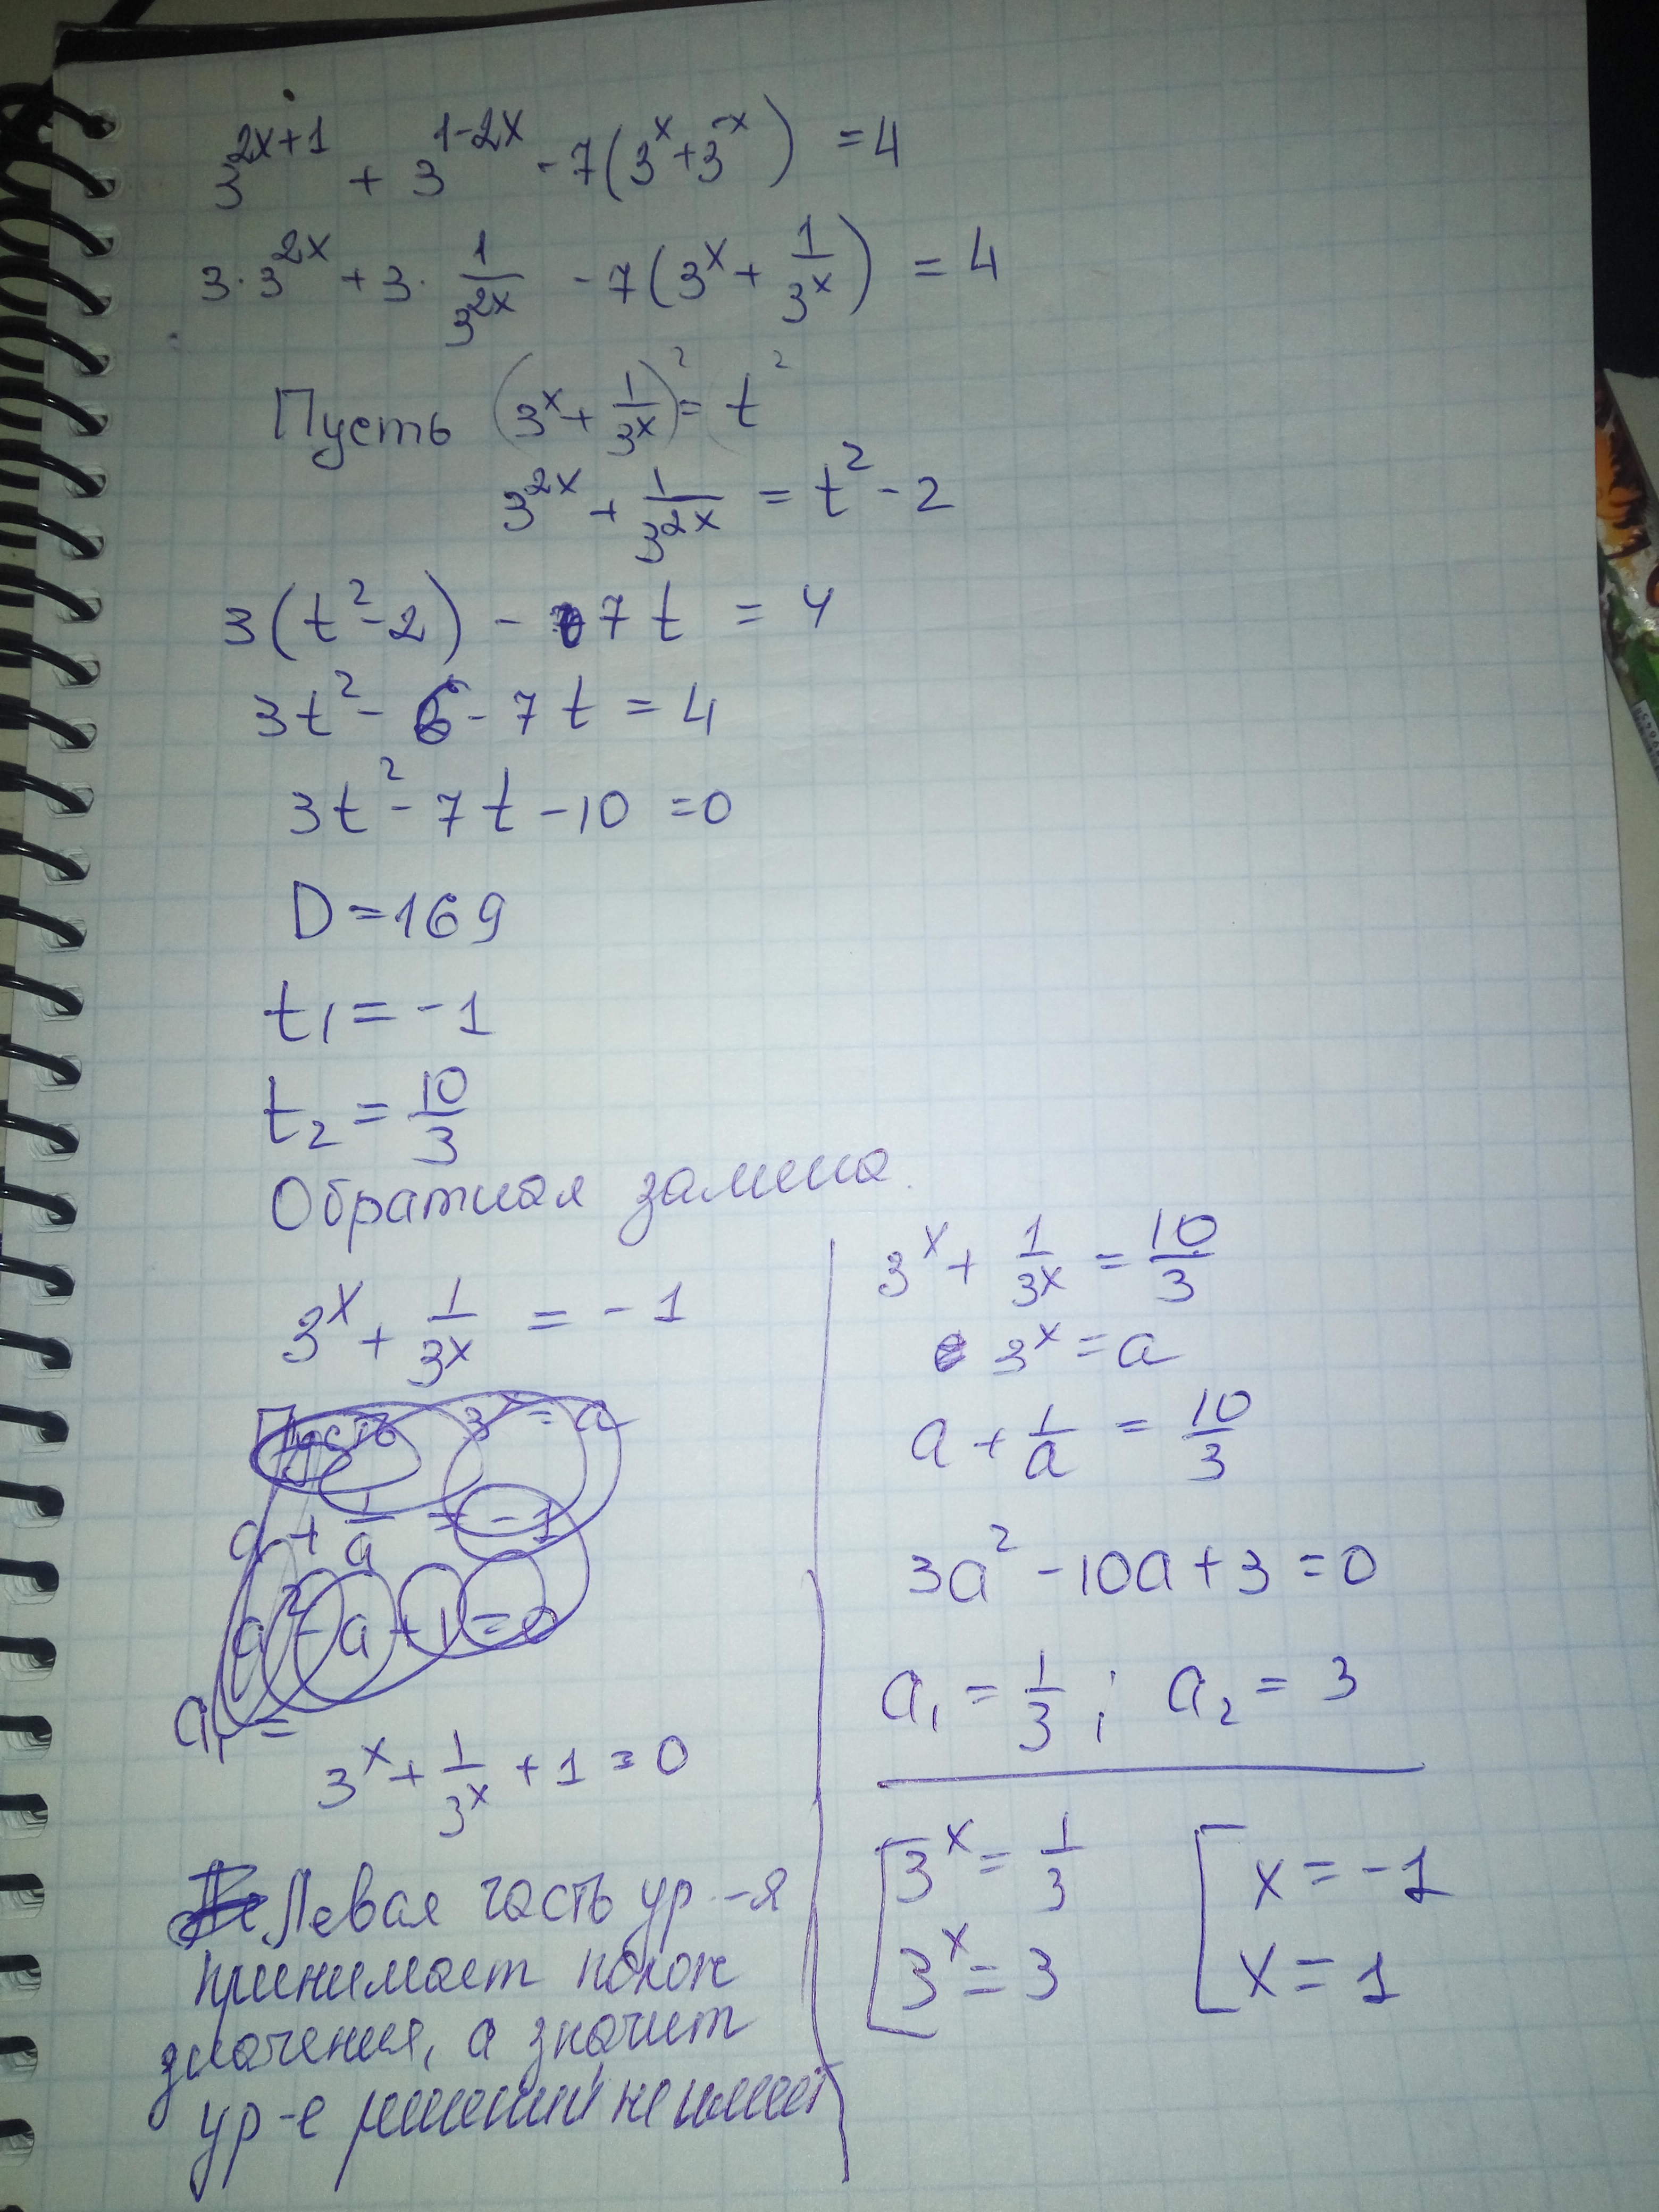 3^{2x+1} + 3^{1-2x} - 7(3^x + 3^{-x}) = 4
3 · 3^{2x} + 3 · \frac{1}{3^{2x}} - 7(3^x + \frac{1}{3^x}) = 4
Пусть (3^x + \frac{1}{3^x})^2 = t^2
3^{2x} + \frac{1}{3^{2x}} = t^2 - 2
3(t^2 - 2) - 7t = 4
3t^2 - 6 - 7t = 4
3t^2 - 7t - 10 = 0
D = 169
t_1 = -1
t_2 = \frac{10}{3}
Обратная замена.
3^x + \frac{1}{3^x} = -1
Пусть 3^x = a
a + \frac{1}{a} = -1
a^2 - a + 1 = 0
a_1 =
3^x + \frac{1}{3^x} + 1 = 0
Левая часть ур-я
принимает полож
значения, а значит
ур-е решений не имеет
3^x + \frac{1}{3^x} = \frac{10}{3}
3^x = a
a + \frac{1}{a} = \frac{10}{3}
3a^2 - 10a + 3 = 0
a_1 = \frac{1}{3}; a_2 = 3
[3^x = \frac{1}{3} [x = -1
3^x = 3 x = 1